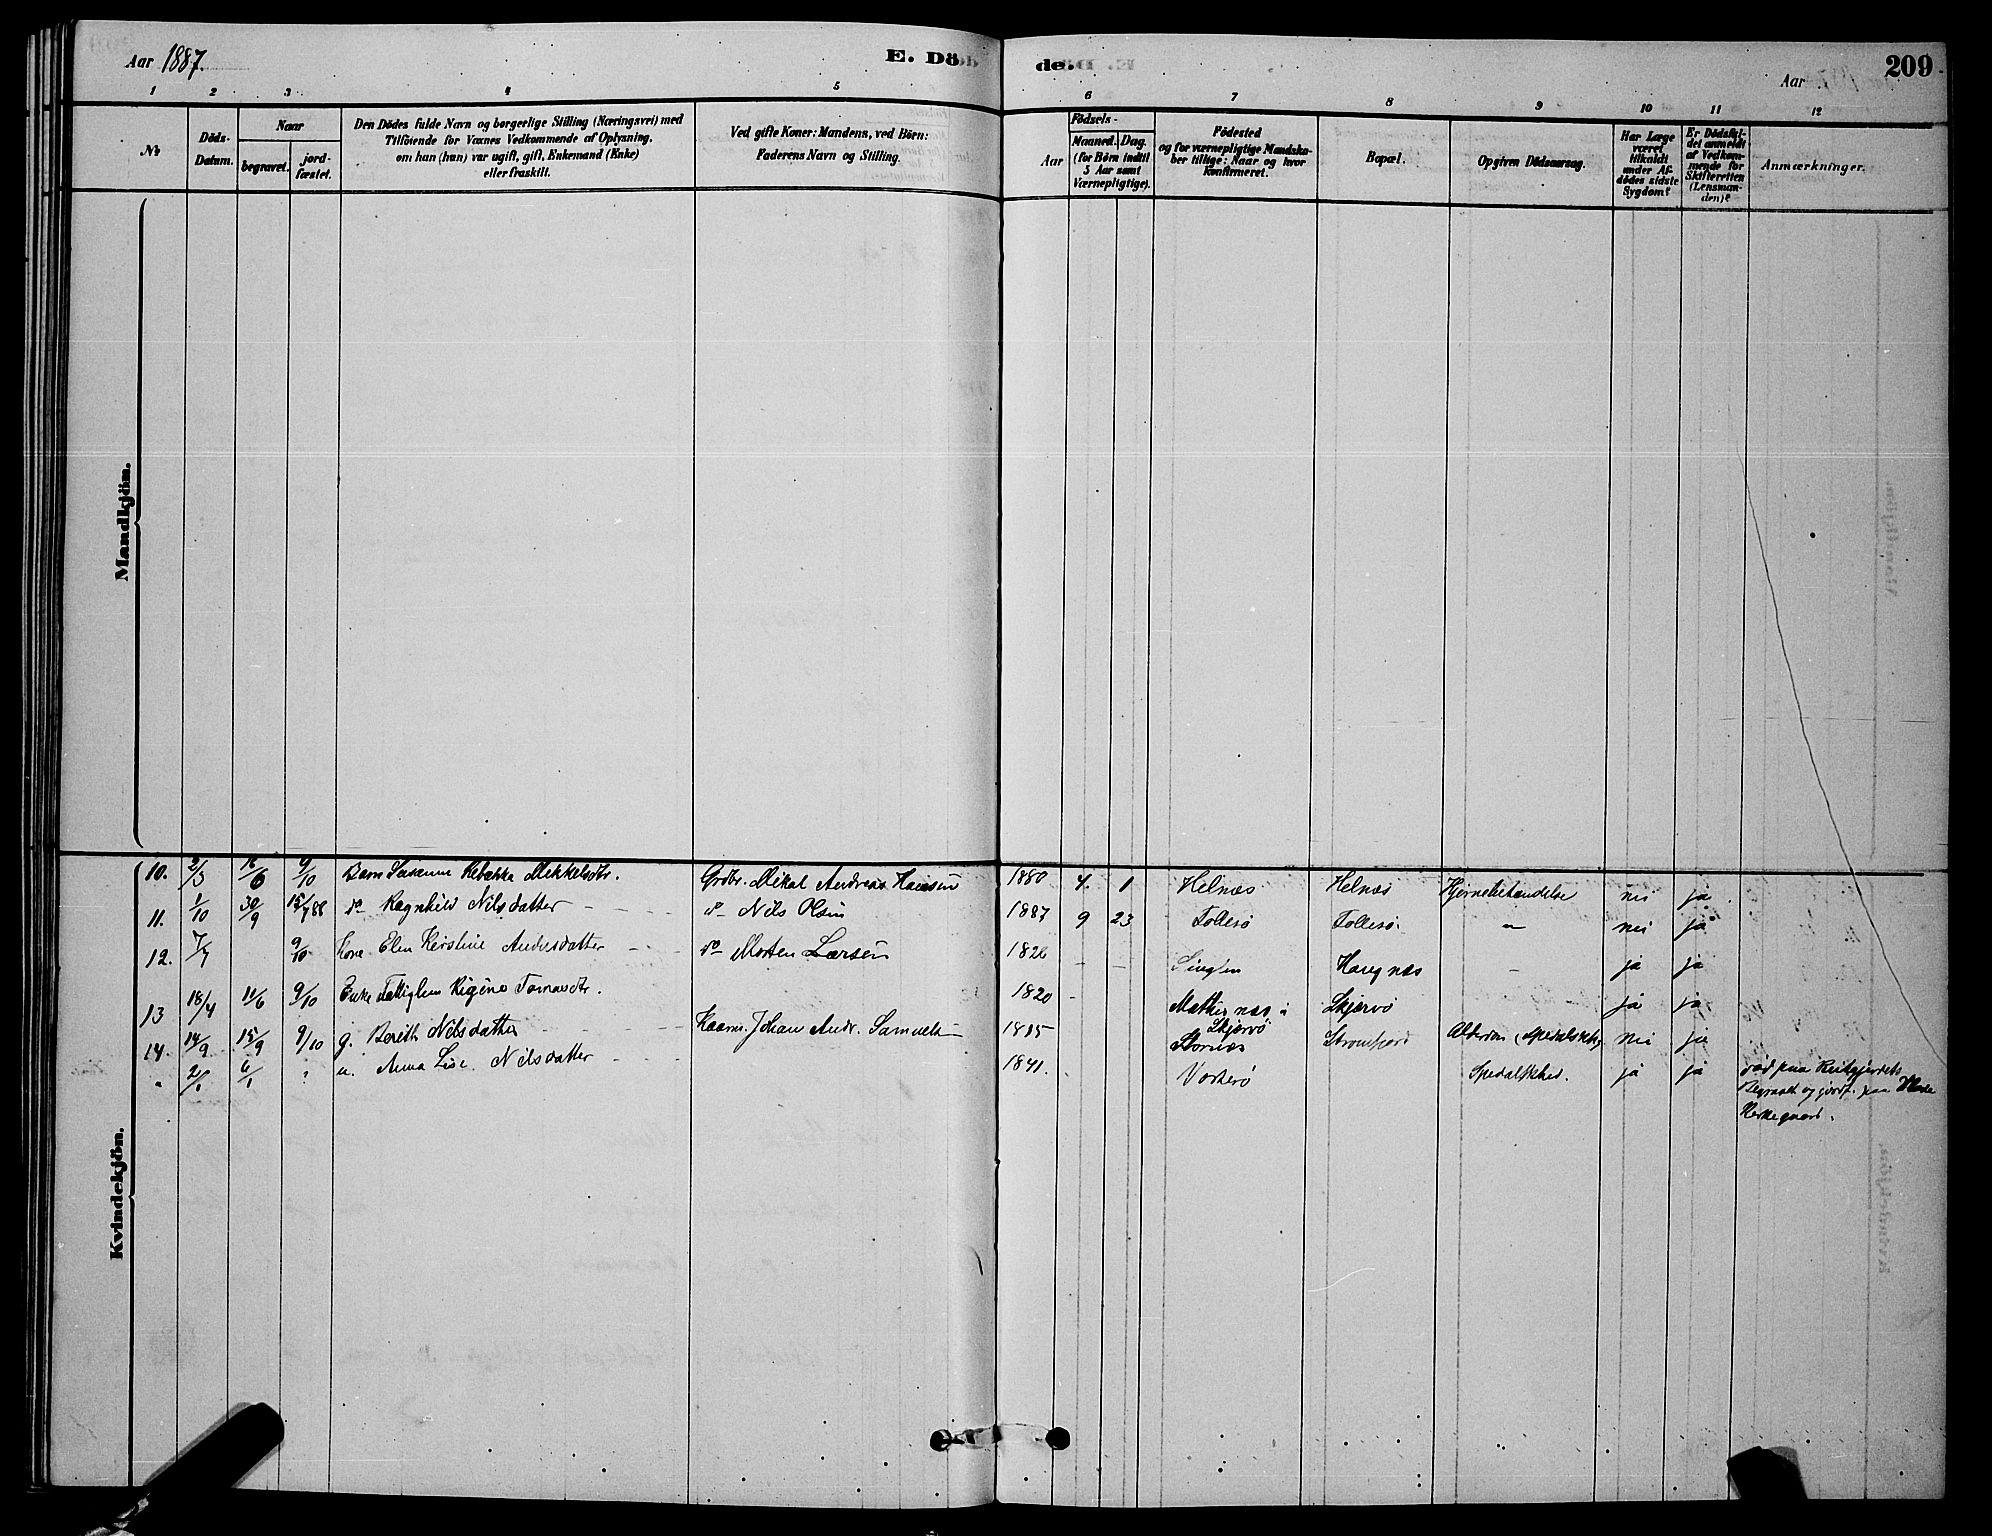 Aar 1887.
E. Döde.
Aar
209
1 2 3 4 5 6 7 8 9 10 11 12
No
Döds-Datum.
Naar
begravet.
jord-fæstet.
Den Dödes fulde Navn og borgerlige Stilling (Næringsvei) med
Tilföiende for Voxnes Vedkommende af Oplysning,
om han (hun) var ugift, gift, Enkemand (Enke)
eller fraskilt.
Ved gifte Koner: Mandens, ved Börn:
Faderens Navn og Stilling.
Födsels-
Aar
Maaned. Dag.
(for Börn indtil
5 Aar samt
Værnepligtige).
Födested
og for værnepligtige Mandska-
ber tillige: Naar og hvor
konfirmeret.
Bopæl.
Opgiven Dödsaarsag.
Har Læge
været
tilkaldt
under Af-
dödes sidste
Sygdom?
Er Dödsfal-
det anmeldt
af Vedkom-
mende for
Skifteretten
(Lensman-
den)?
Anmærkninger.
Mandkjön.
Kvindekjön.
10. 2/3 16/6 9/10 Barn Susanne Rebekka Mikkelsdtr. Grdbr. Mikal Andreas Hansen 1880 4. 1 Helnæs Helnæs Hjernebetændelse nei ja
11. 1/10 30/9 15/7 88 do Ragnhild Nilsdatter do Nils Olsen 1887 9 23 Follesø Follesø. " nei ja
12. 7/7 9/10 Kone Elen Kirstine Andersdatter do Morten Larsen - - Haugnæs - ja ja
13 18/4 11/6 9/10 Enke Regine 1820 - i Skjærvö Skjærvö ja ja
14. 14/9 15/9 9/10 g. Bereth Nilsdatter Johan Andr. Samuels 1815 Stornæs Straumfjord Alderdom (Spedalskhed) nei ja
" 6/1 " u. Anna Lise Nilsdatter 1841. Vorterö Spedalskhed. ja ja död paa Reitgjerdet
Begravet og jordf. paa
Kirkegaard.